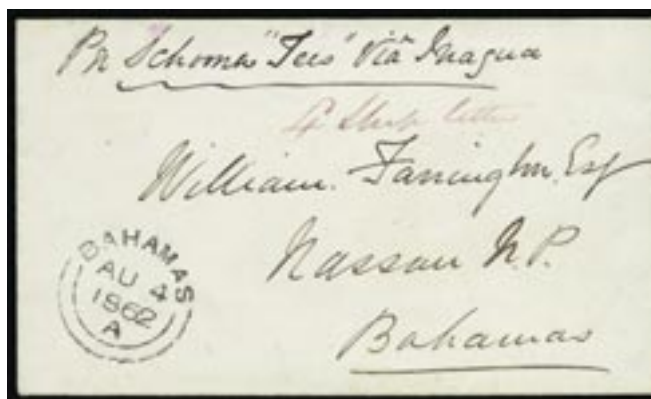 Pr Schooner "Tees" Via Inagua
4 Ship letter
William Farrington Esq
Nassau N.P.
Bahamas
BAHAMAS
AU 4
1862
A